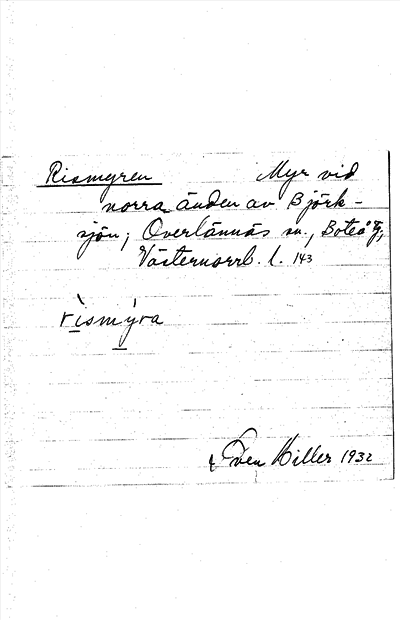 Rismyren Myr vid
norra änden av Björk-
sjön; Överlännäs sn., Boteå
Västernorrl. l. 143
rismýra
Sven Hiller 1932